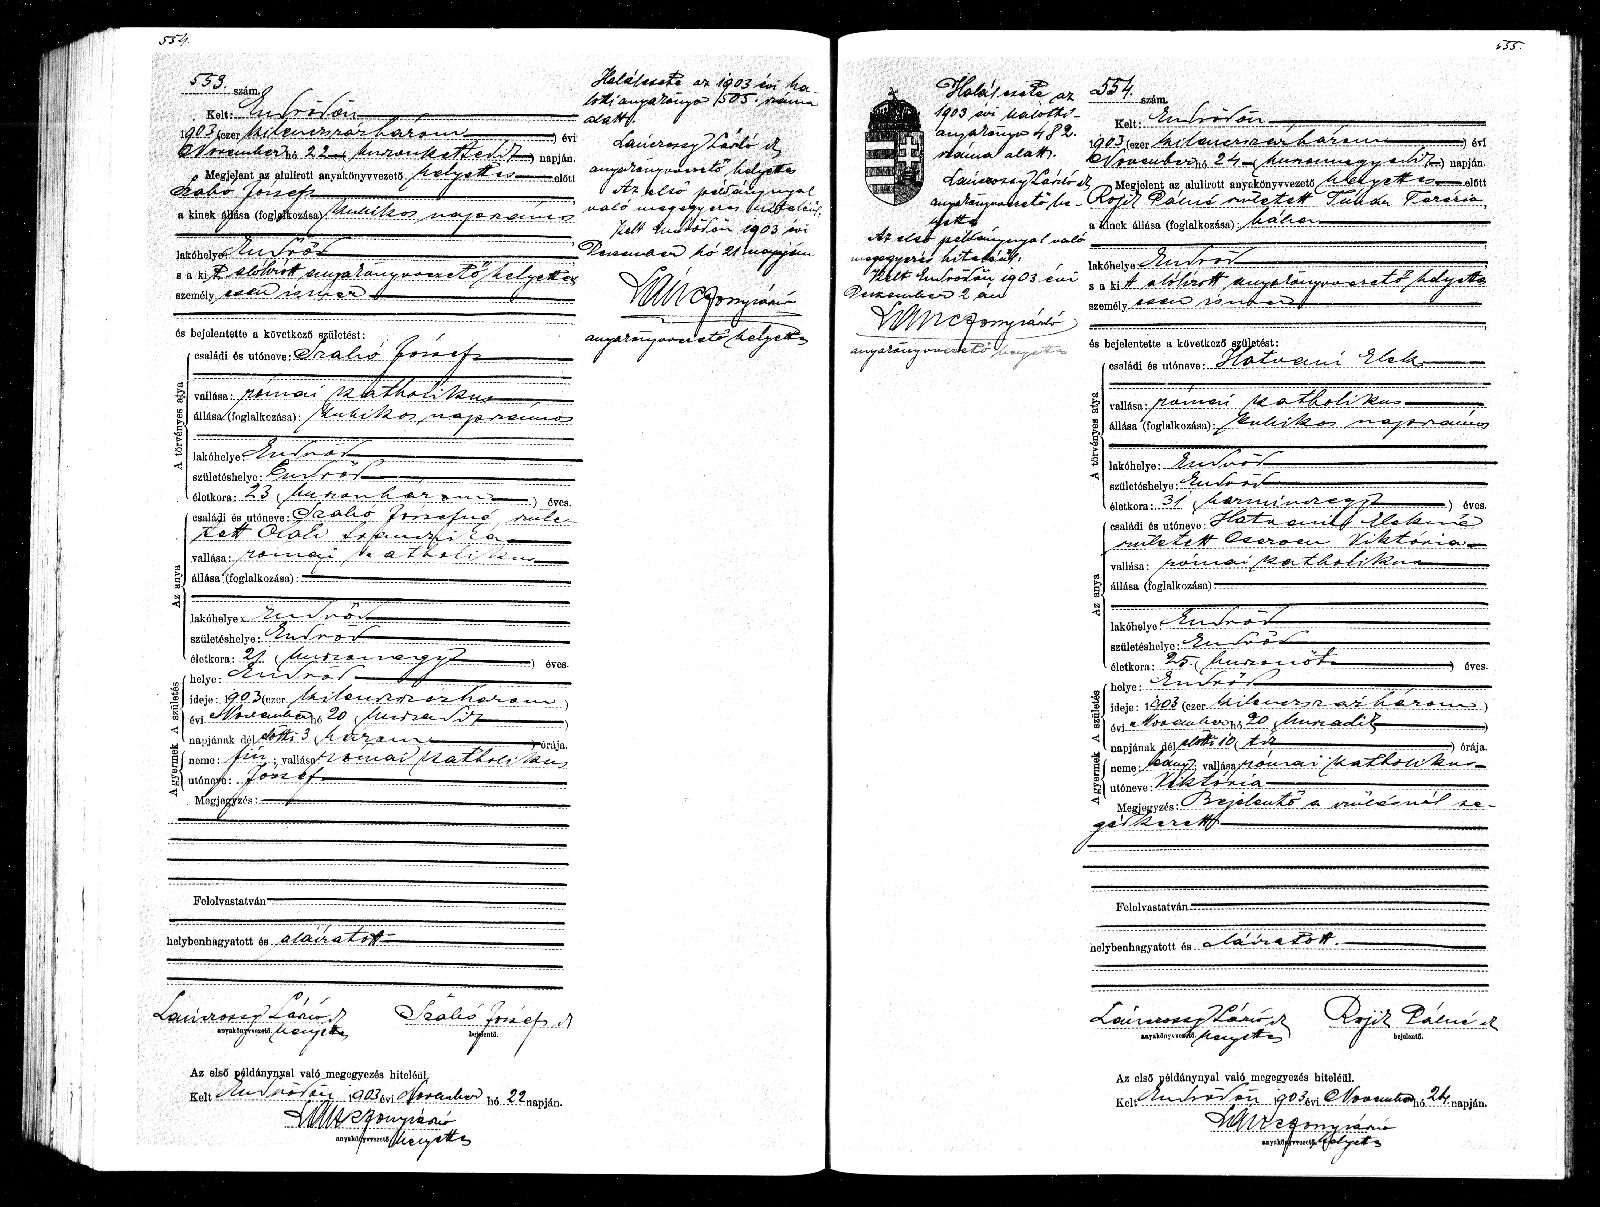 554.
553. szám.
Kelt: Endrődön
1903 (ezer kilenczszázhárom) évi
November hó 22 (huszonkettedik) napján.
Megjelent az alulirott anyakönyvvezető helyettes előtt
Szabó József
a kinek állása (foglalkozása) kubikos napszámos
lakóhelye Endrőd
s a kit alólirott anyakönyvvezető helyettes
személyesen ismer
és bejelentette a következő születést:
A törvényes atya
családi és utóneve: Szabó József
vallása: római katholikus
állása (foglalkozása): kubikos napszámos
lakóhelye Endrőd
születéshelye: Endrőd
életkora: 23 (huszonhárom) éves.
Az anya
családi és utóneve: Szabó Józsefné, szüle-
tett
vallása: római katholikus
állása (foglalkozása):
lakóhelye: Endrőd
születéshelye: Endrőd
életkora: 21 (huszonegy) éves.
A születés
helye: Endrőd
ideje: 1903 (ezer kilenczszázhárom)
évi November hó 20 (huszadik)
napjának délelőtti 3 (három) órája.
A gyermek
neme: fiú; vallása: római katholikus
utóneve: József
Megjegyzés:
Felolvastatván
helybenhagyatott és aláiratott
anyakönyvvezető helyettes
Szabó József
bejelentő.
Az első példánynyal való megegyezés hiteléül.
Kelt Endrődön 1903 évi November hó 22 napján.
anyakönyvvezető helyettes
Halálesete az 1903 évi ha-
lotti anyakönyv 505. száma
alatt.
anyakönyvvezető helyettes
Az első példánynyal
való megegyezés hiteléül.
Kelt Endrődön 1903 évi
December hó 21 napján
anyakönyvvezető helyettes
Halálesete az
1903 évi halotti
anyakönyv 482.
száma alatt.
anyakönyvvezető he-
lyettes
Az első példánynyal való
megegyezés hiteléül.
Kelt Endrődön, 1903 évi
December 2 án
anyakönyvvezető helyettes
555.
554. szám.
Kelt: Endrődön
1903 (ezer kilenczszázhárom) évi
November hó 24 (huszonnegyedik) napján.
Megjelent az alulirott anyakönyvvezető helyettes előtt
Rojik Pálné született Terézia,
a kinek állása (foglalkozása): bába
lakóhelye: Endrőd
s a kit alólirott anyakönyvvezető helyettes
személyesen ismer
és bejelentette a következő születést:
A törvényes atya
családi és utóneve: Hatvani Elek
vallása: római katholikus
állása (foglalkozása): kubikos napszámos
lakóhelye: Endrőd
születéshelye: Endrőd
életkora: 31 (harminczegy) éves.
Az anya
családi és utóneve: Hatvani Elekné
született Cserven Viktória
vallása: római katholikus
állása (foglalkozása)
lakóhelye: Endrőd
születéshelye: Endrőd
életkora: 25 (huszonöt) éves.
A születés
helye: Endrőd
ideje: 1903 (ezer kilenczszázhárom)
évi November hó 20 (huszadik)
napjának délelőtti 10 (tiz) órája.
A gyermek
neme: leány; vallása: római katholikus
utóneve: Viktória
Megjegyzés: Bejelentő a szülésnél se-
gédkezett
Felolvastatván
helybenhagyatott és aláiratott.
anyakönyvvezető helyettes
Rojik Pálné
bejelentő.
Az első példánynyal való megegyezés hiteléül.
Kelt Endrődön 1903 évi November hó 24 napján.
anyakönyvvezető helyettes